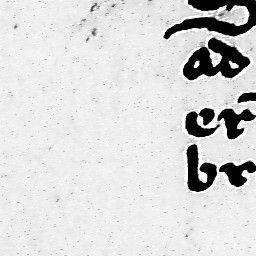 ad
er
br